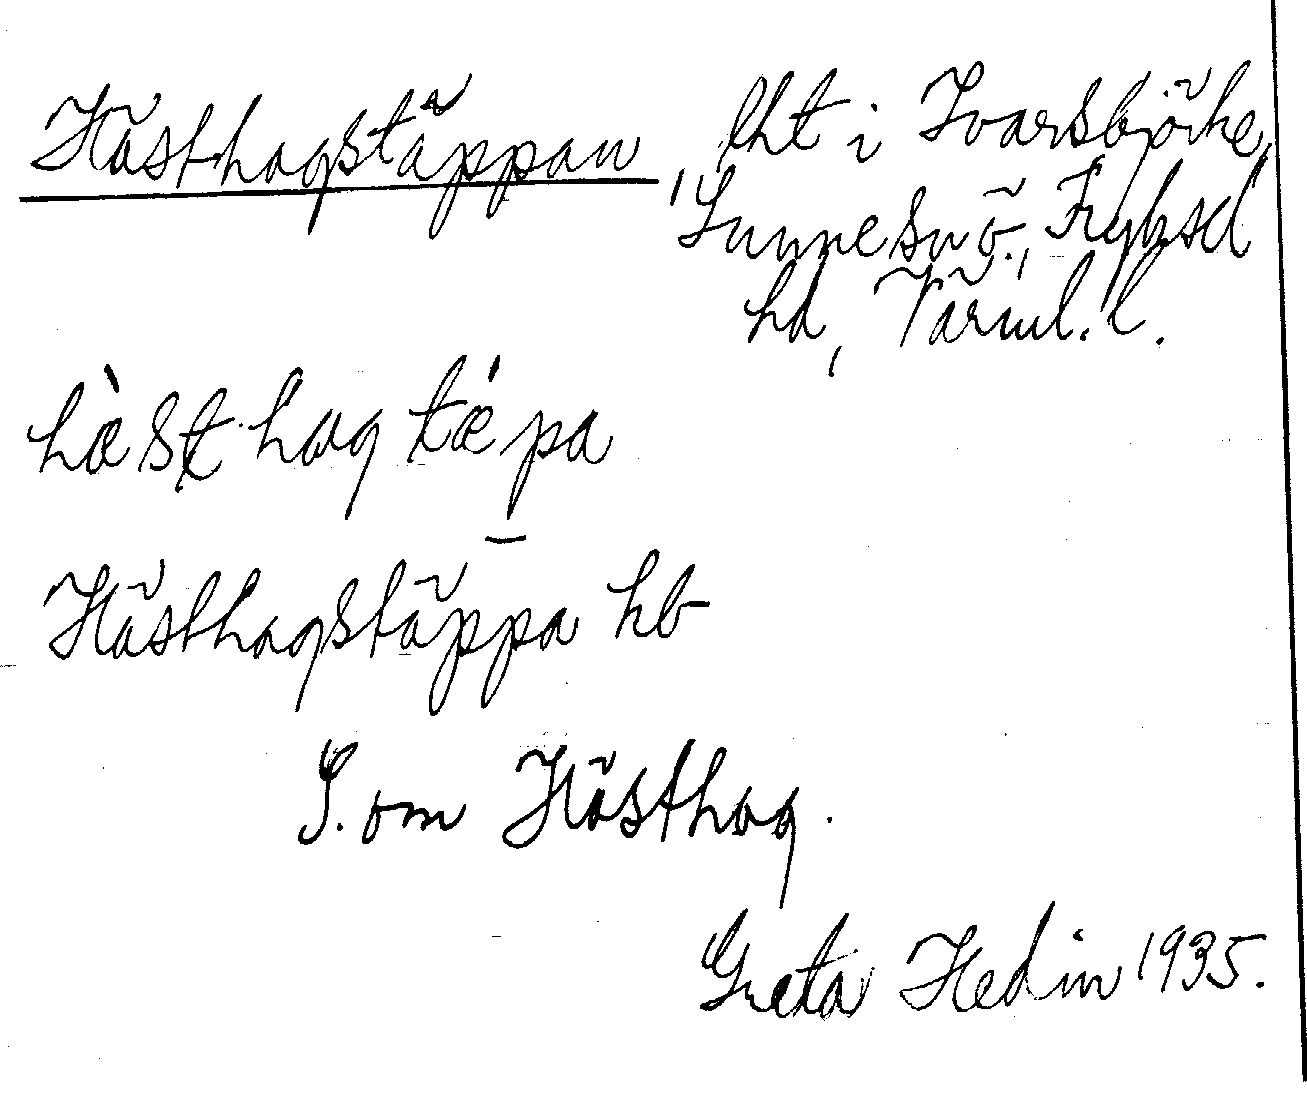 Hästhagstäppan, lht i Ivarsbjörke,
Sunne sn ö., Fryksd
hd, Värml. l.
hæ̀st hag tǽpa
Hästhagstäppa hb
S. om Hästhag.
Greta Hedin 1935.